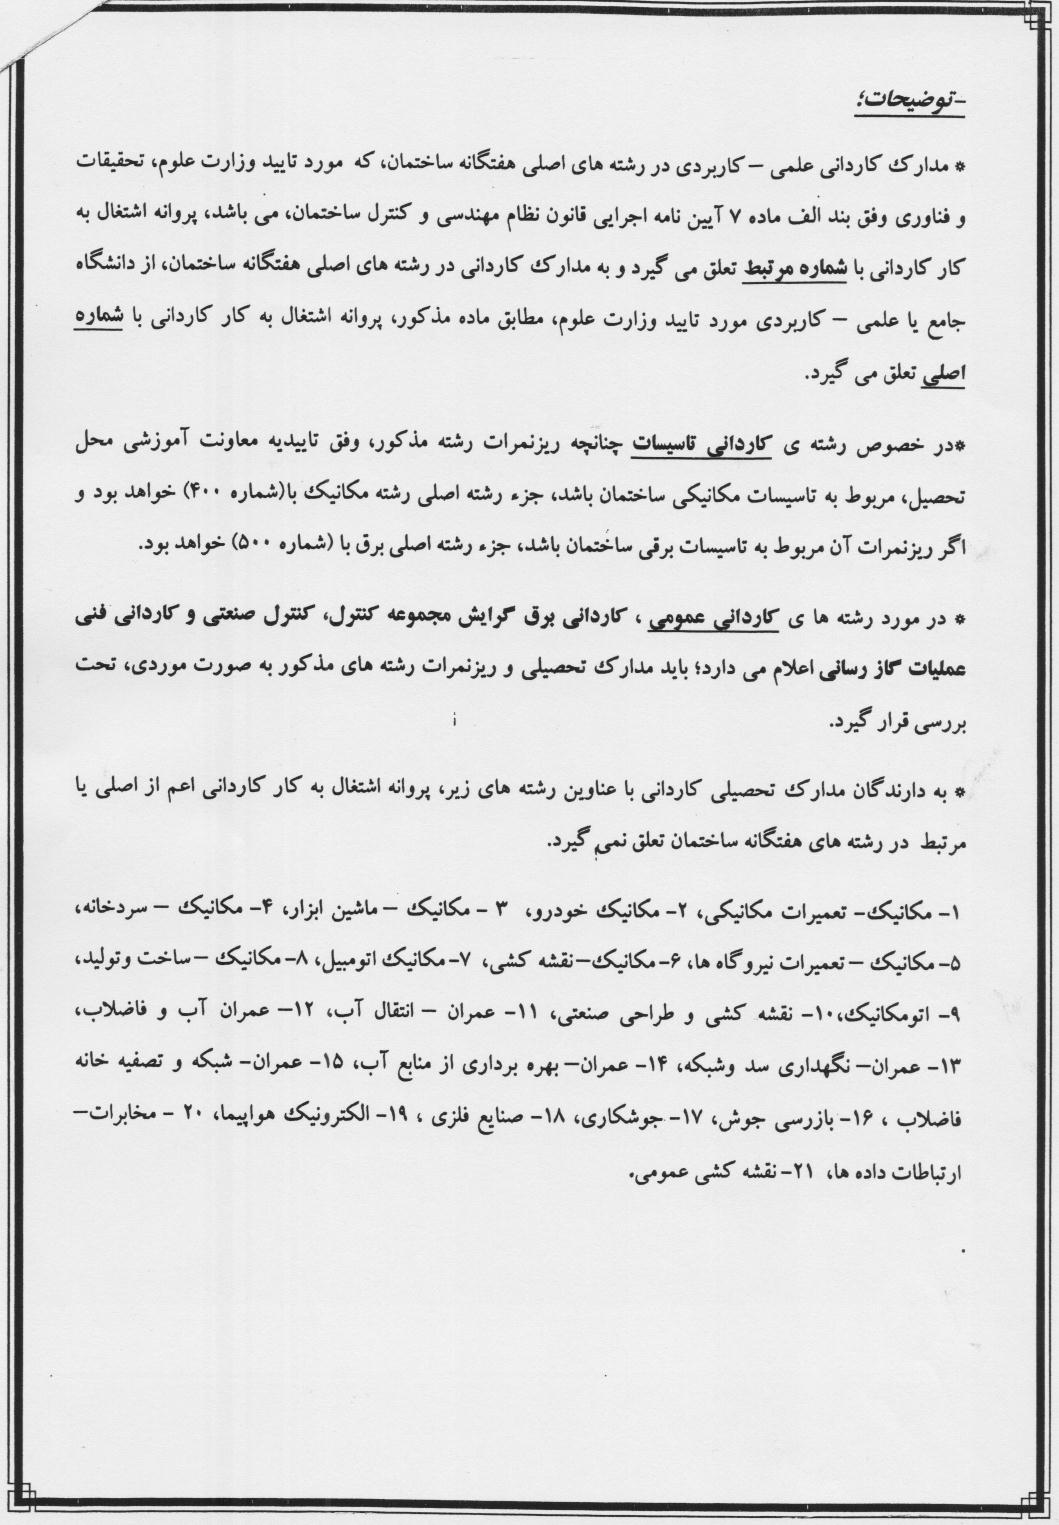 -توضیحات؛
* مدارک کاردانی علمی – کاربردی در رشته های اصلی هفتگانه ساختمان، که مورد تایید وزارت علوم، تحقیقات
و فناوری وفق بند الف ماده ۷ آیین نامه اجرایی قانون نظام مهندسی و کنترل ساختمان، می باشد، پروانه اشتغال به
کار کاردانی با شماره مرتبط تعلق می گیرد و به مدارک کاردانی در رشته های اصلی هفتگانه ساختمان، از دانشگاه
جامع یا علمی – کاربردی مورد تایید وزارت علوم، مطابق ماده مذکور، پروانه اشتغال به کار کاردانی با شماره
اصلی تعلق می گیرد.
*در خصوص رشته ی کاردانی تاسیسات چنانچه ریزنمرات رشته مذکور، وفق تاییدیه معاونت آموزشی محل
تحصیل، مربوط به تاسیسات مکانیکی ساختمان باشد، جزء رشته اصلی رشته مکانیک با(شماره ۴۰۰) خواهد بود و
اگر ریزنمرات آن مربوط به تاسیسات برقی ساختمان باشد، جزء رشته اصلی برق با (شماره ۵۰۰) خواهد بود.
* در مورد رشته ها ی کاردانی عمومی ، کاردانی برق گرایش مجموعه کنترل، کنترل صنعتی و کاردانی فنی
عملیات گاز رسانی اعلام می دارد؛ باید مدارک تحصیلی و ریزنمرات رشته های مذکور به صورت موردی، تحت
بررسی قرار گیرد.
* به دارندگان مدارک تحصیلی کاردانی با عناوین رشته های زیر، پروانه اشتغال به کار کاردانی اعم از اصلی یا
مرتبط در رشته های هفتگانه ساختمان تعلق نمی گیرد.
۱- مکانیک- تعمیرات مکانیکی، ۲- مکانیک خودرو، ۳ - مکانیک – ماشین ابزار، ۴- مکانیک – سردخانه،
۵- مکانیک – تعمیرات نیروگاه ها، ۶- مکانیک–نقشه کشی، ۷-مکانیک اتومبیل، ۸-مکانیک –ساخت وتولید،
۹- اتومکانیک،۱۰- نقشه کشی و طراحی صنعتی، ۱۱- عمران – انتقال آب، ۱۲– عمران آب و فاضلاب،
۱۳- عمران– نگهداری سد وشبکه، ۱۴- عمران– بهره برداری از منابع آب، ۱۵- عمران- شبکه و تصفیه خانه
فاضلاب ، ۱۶- بازرسی جوش، ۱۷- جوشکاری، ۱۸- صنایع فلزی ، ۱۹- الکترونیک هواپیما، ۲۰ - مخابرات–
ارتباطات داده ها، ۲۱-نقشه کشی عمومی.